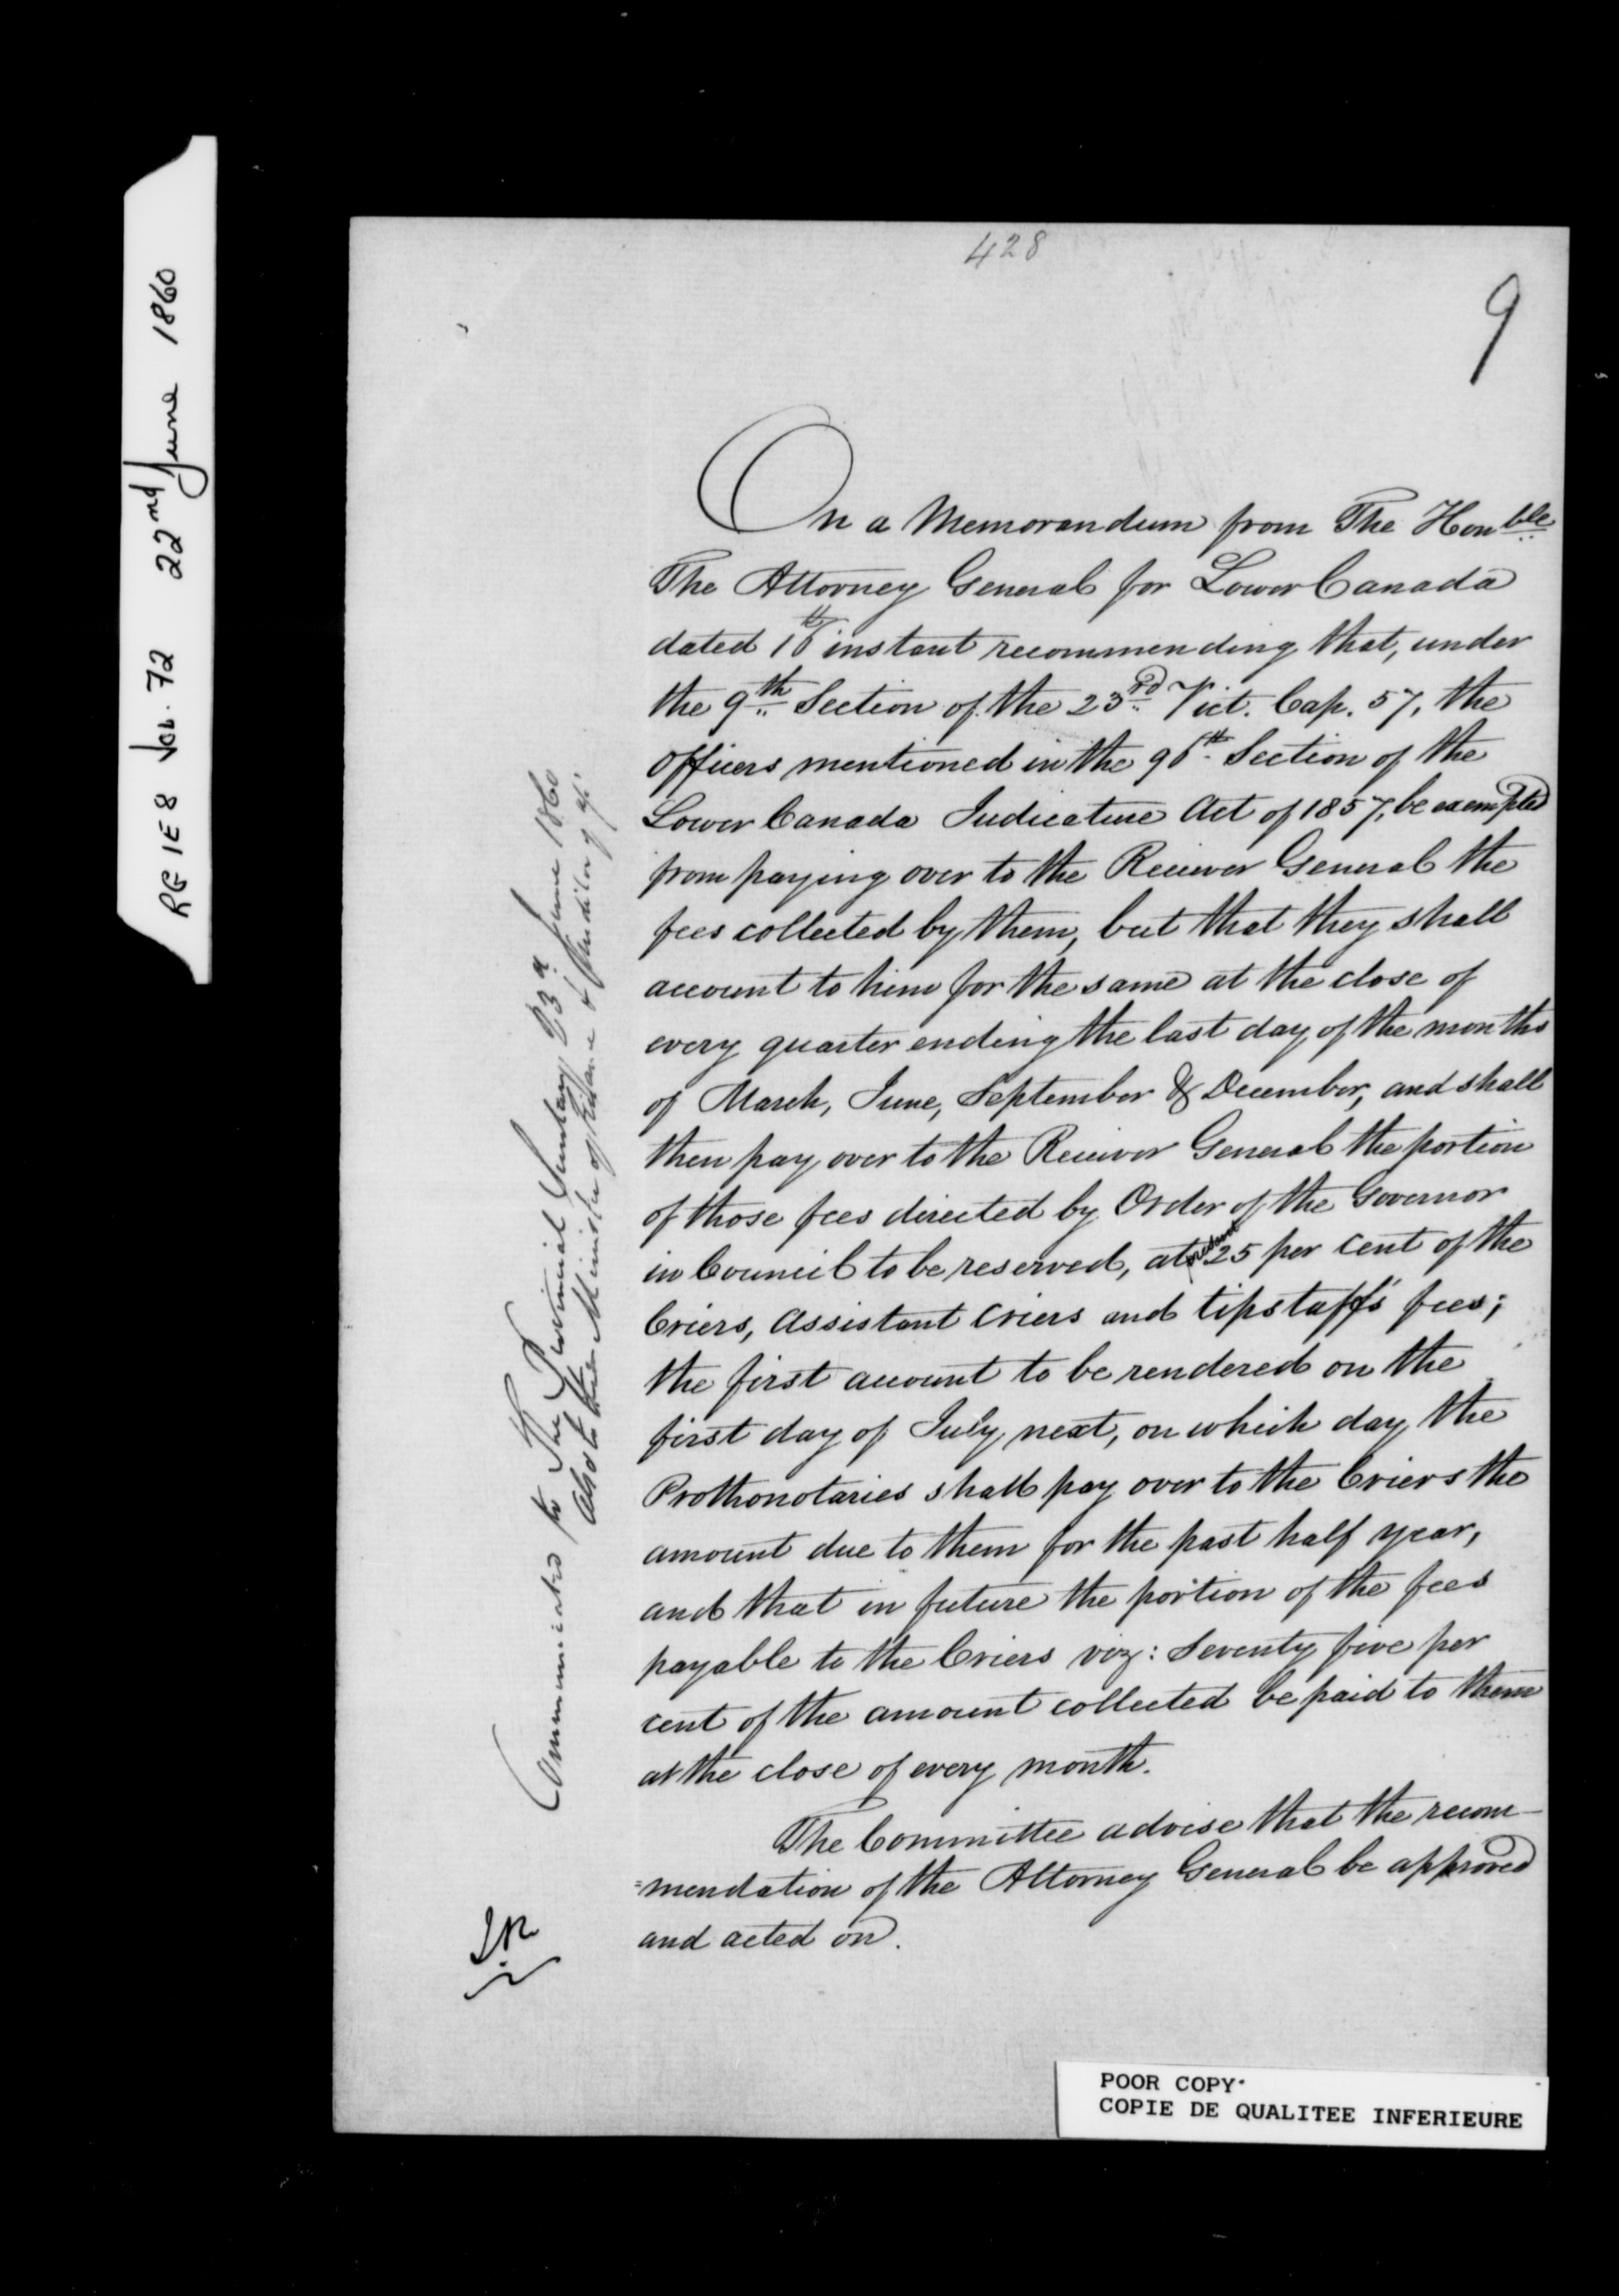 RG 1 E 8 Vol. 72 22nd June 1860
428
9
On a Memorandum from The Honble
The Attorney General for Lower Canada
dated 16th instant recommending that, under
the 9th Section of the 23rd Vict. Cap. 57, the
Officers mentioned in the 96th Section of the
Lower Canada Judicature Act of 1857, be exempted
from paying over to the Receiver General the
fees collected by them, but that they shall
account to him for the same at the close of
every quarter ending the last day of the months
of March, June, September & December, and shall
then pay over to the Receiver General the portion
of those fees directed by Order of the Governor
in Council to be reserved, at present 25 per cent of the
Criers, Assistant Criers and tipstaff's fees;
the first account to be rendered on the
first day of July next, on which day the
Prothonotaries shall pay over to the Criers the
amount due to them for the past half year,
and that in future the portion of the fees
payable to the Criers viz: Seventy five per
cent of the amount collected be paid to them
at the close of every month.
The Committee advise that the recom-
=mendation of the Attorney General be approved
and acted on.
Communicated to The Provincial Secretary 23d June 1860
also to the Minister of Finance & Auditor
POOR COPY
COPIE DE QUALITEE INFERIEURE